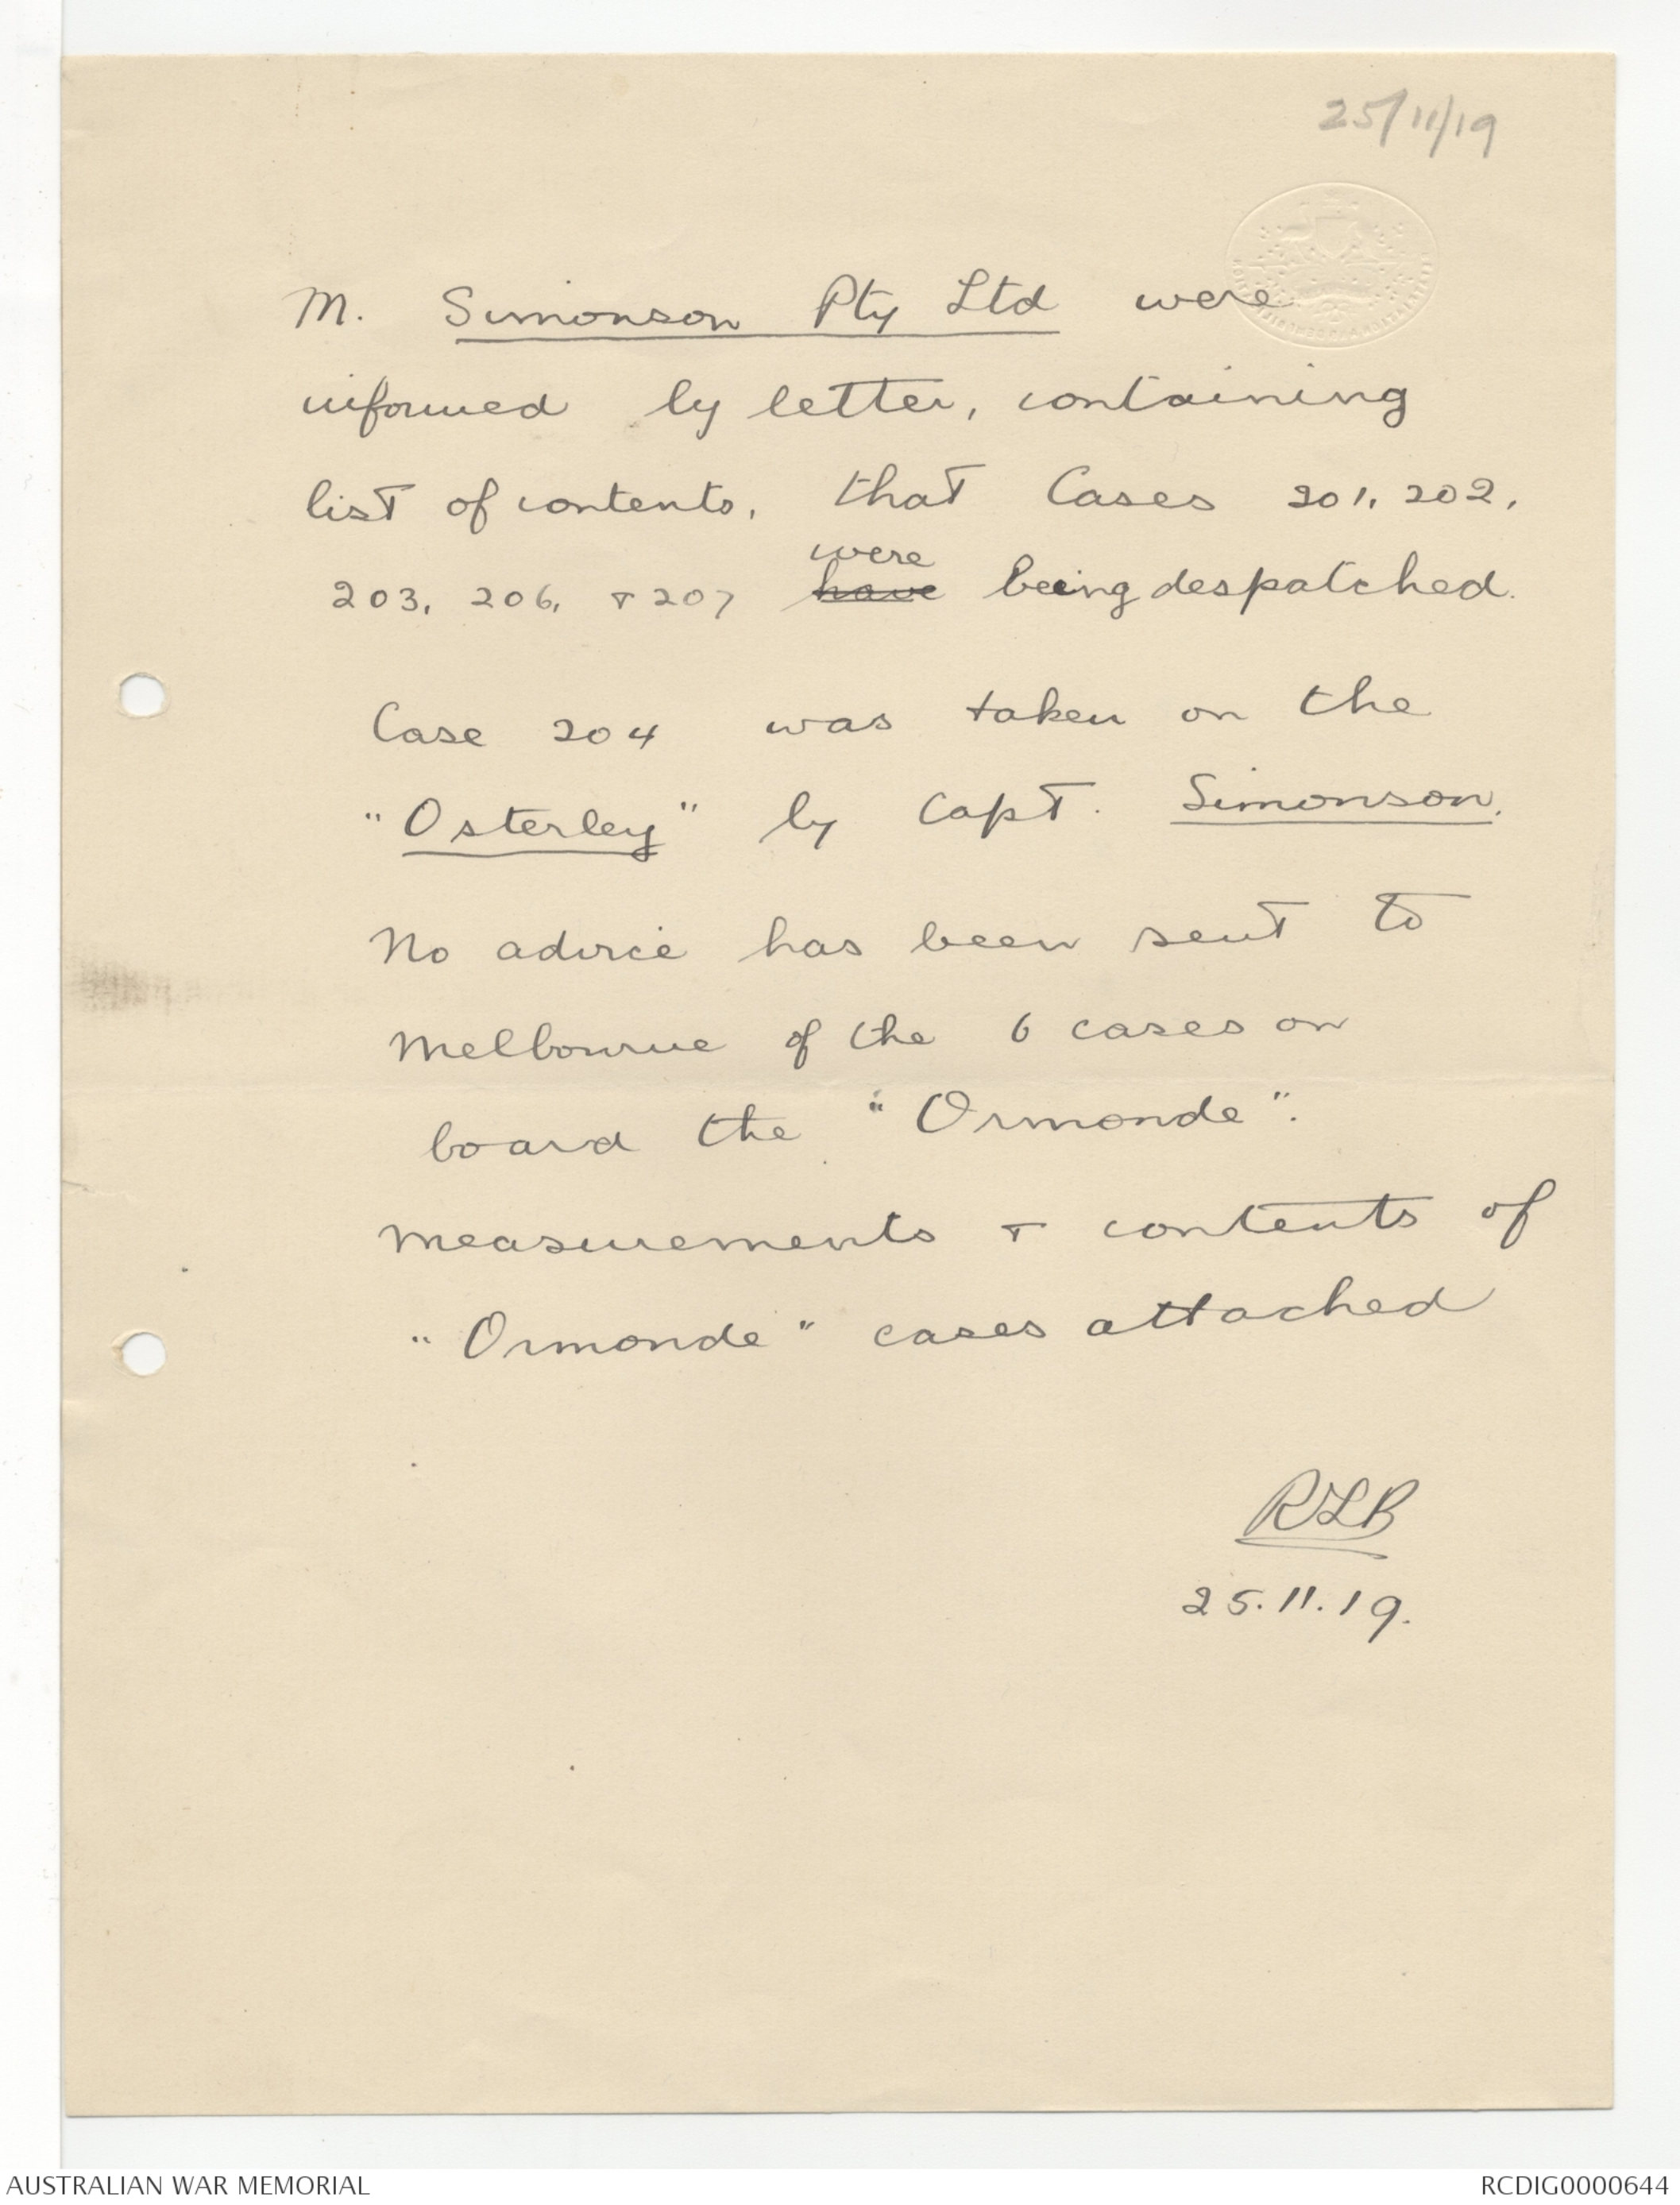 25/11/19
M. Simonson Pty Ltd were
informed by letter, containing
list of contents, that Cases 201, 202,
203, 206, & 207 have were being despatched.
Case 204 was taken on the
"Osterley" by Capt. Simonson.
No advice has been sent to
Melbourne of the 6 cases on
board the "Ormonde".
Measurements & contents of
"Ormonde" cases attached
RLB
25.11.19.
AUSTRALIAN WAR MEMORIAL
RCDIG0000644